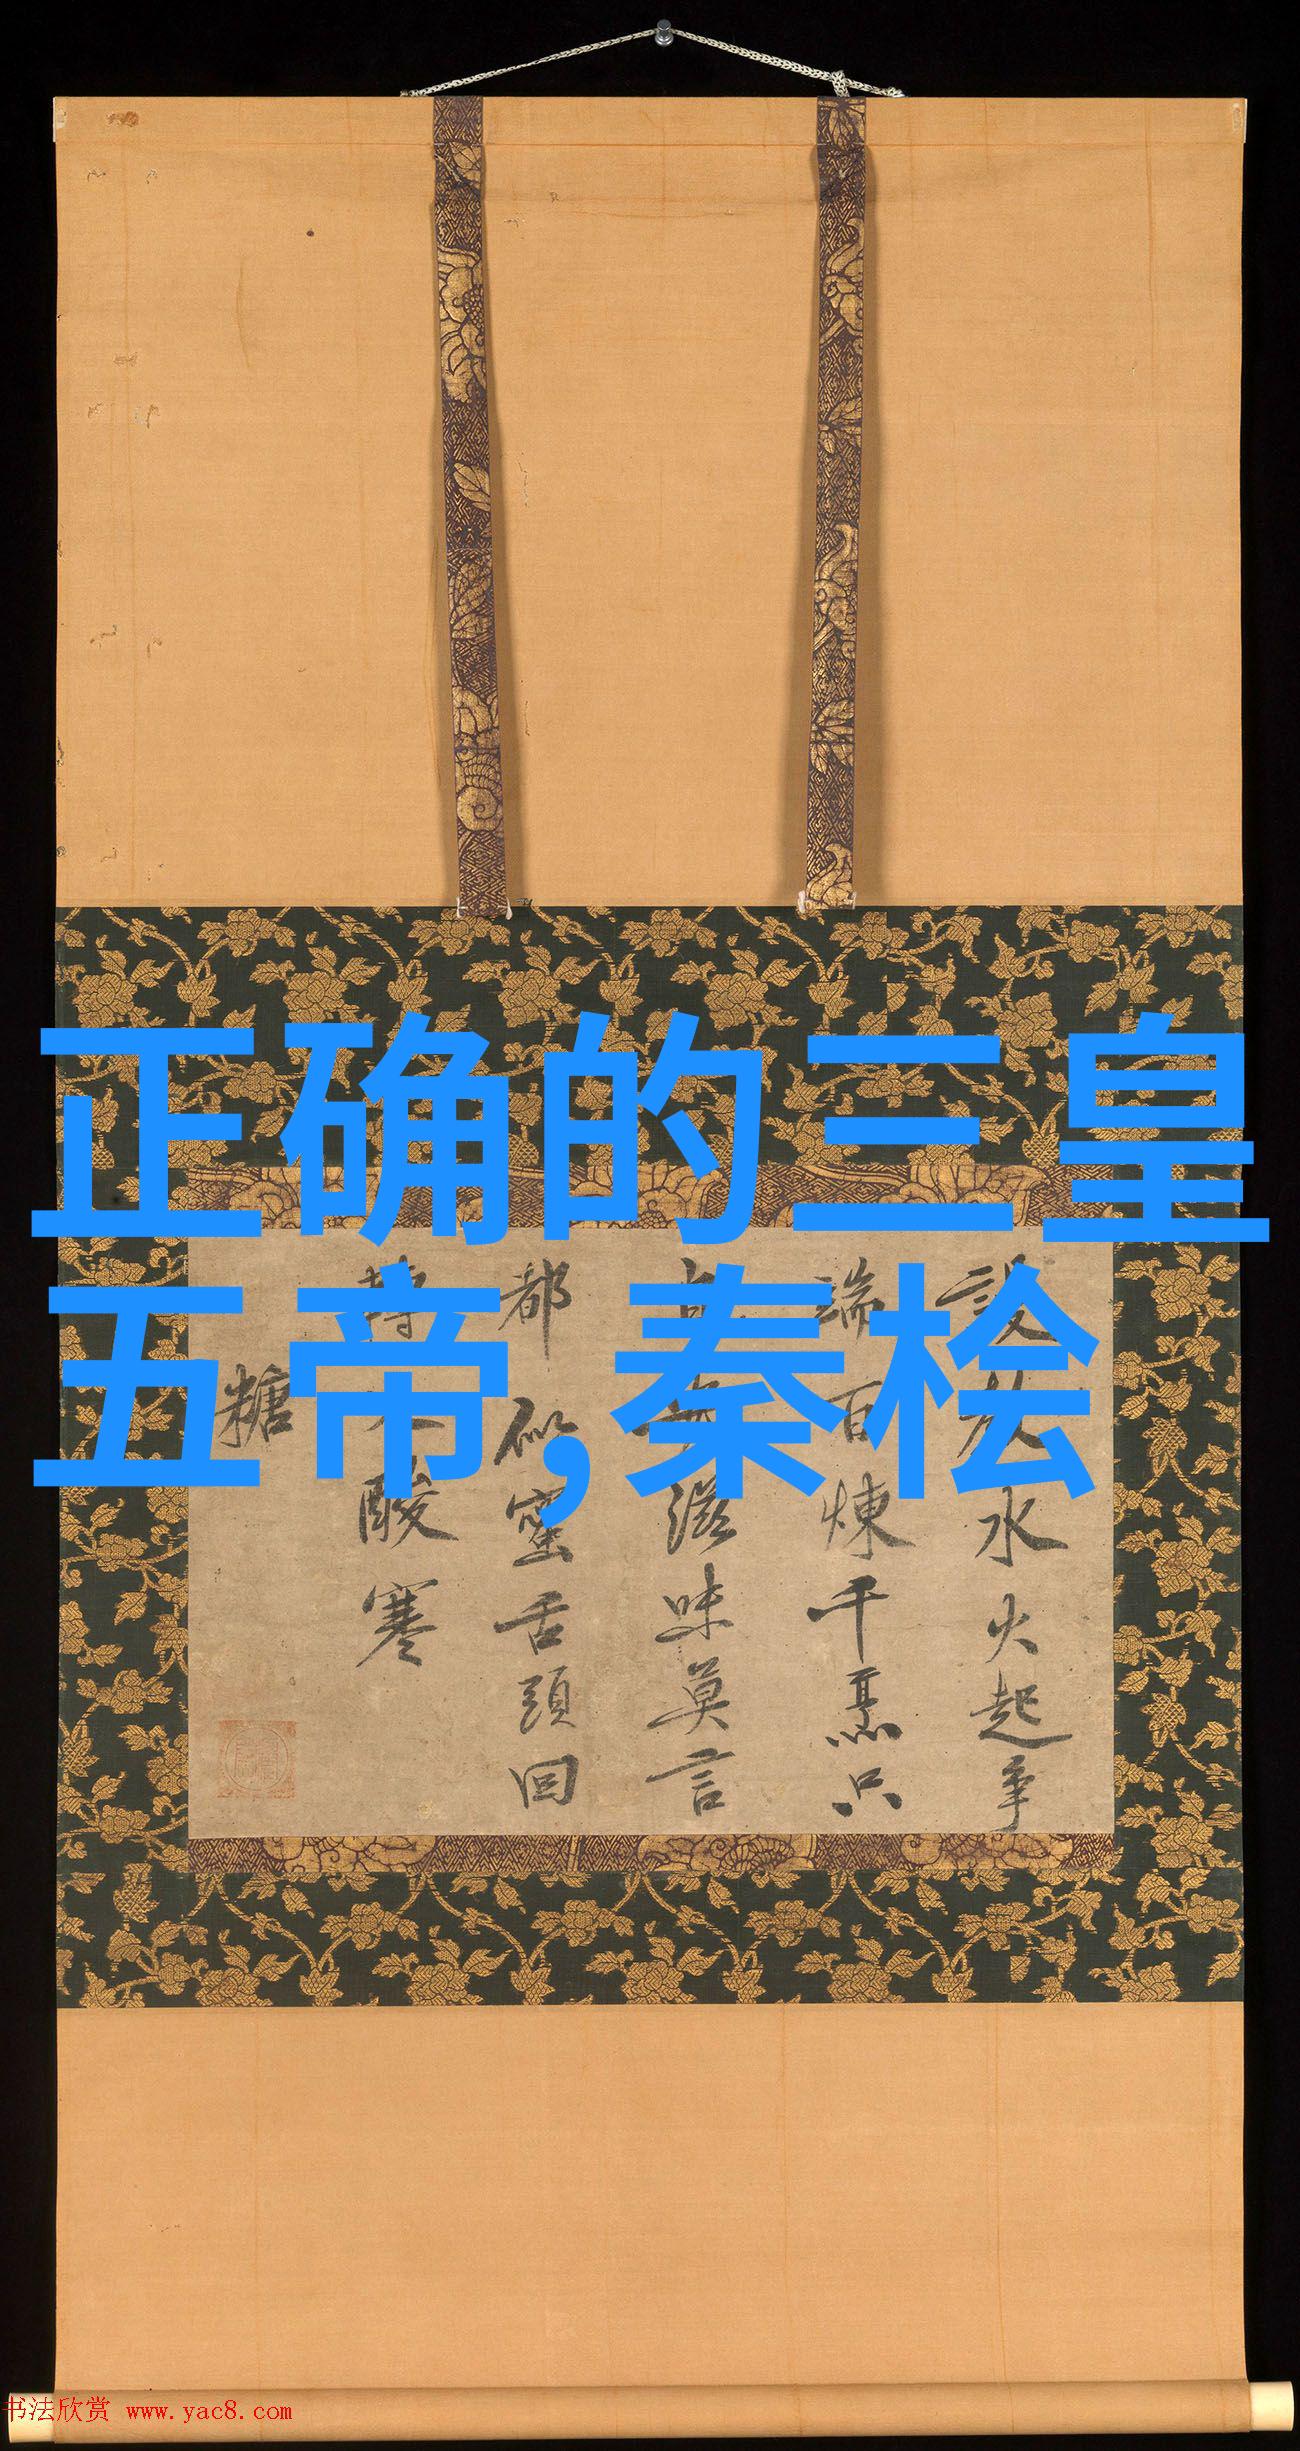 正确的三皇
五帝,秦桧
水火起争
端百煉千烹只
滋味莫言
都似蜜舌頭回
轉酸寒
糖
书法欣赏 www.yac8.com